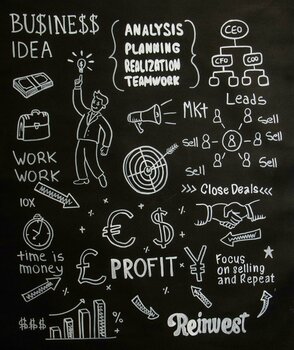 BU$INE$$
IDEA
ANALYSIS
PLANNING
REALIZATION
TEAMWORK
CEO
CFO
COO
MKt
Leads
Sell
Sell
Sell
Sell
WORK
WORK
10X
>>> Close Deals <<<
time is
money
€
$
£
PROFIT
¥
Focus
on selling
and Repeat
$$$
Reinvest